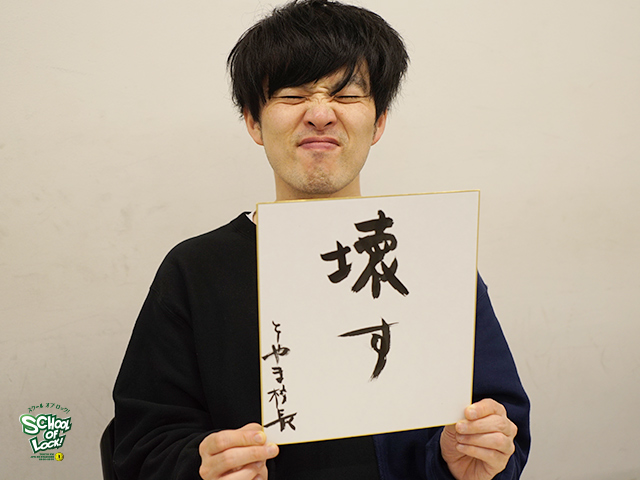 壊す
とやま校長
スクール オブ ロック!
SCHOOL
OF
LOCK!